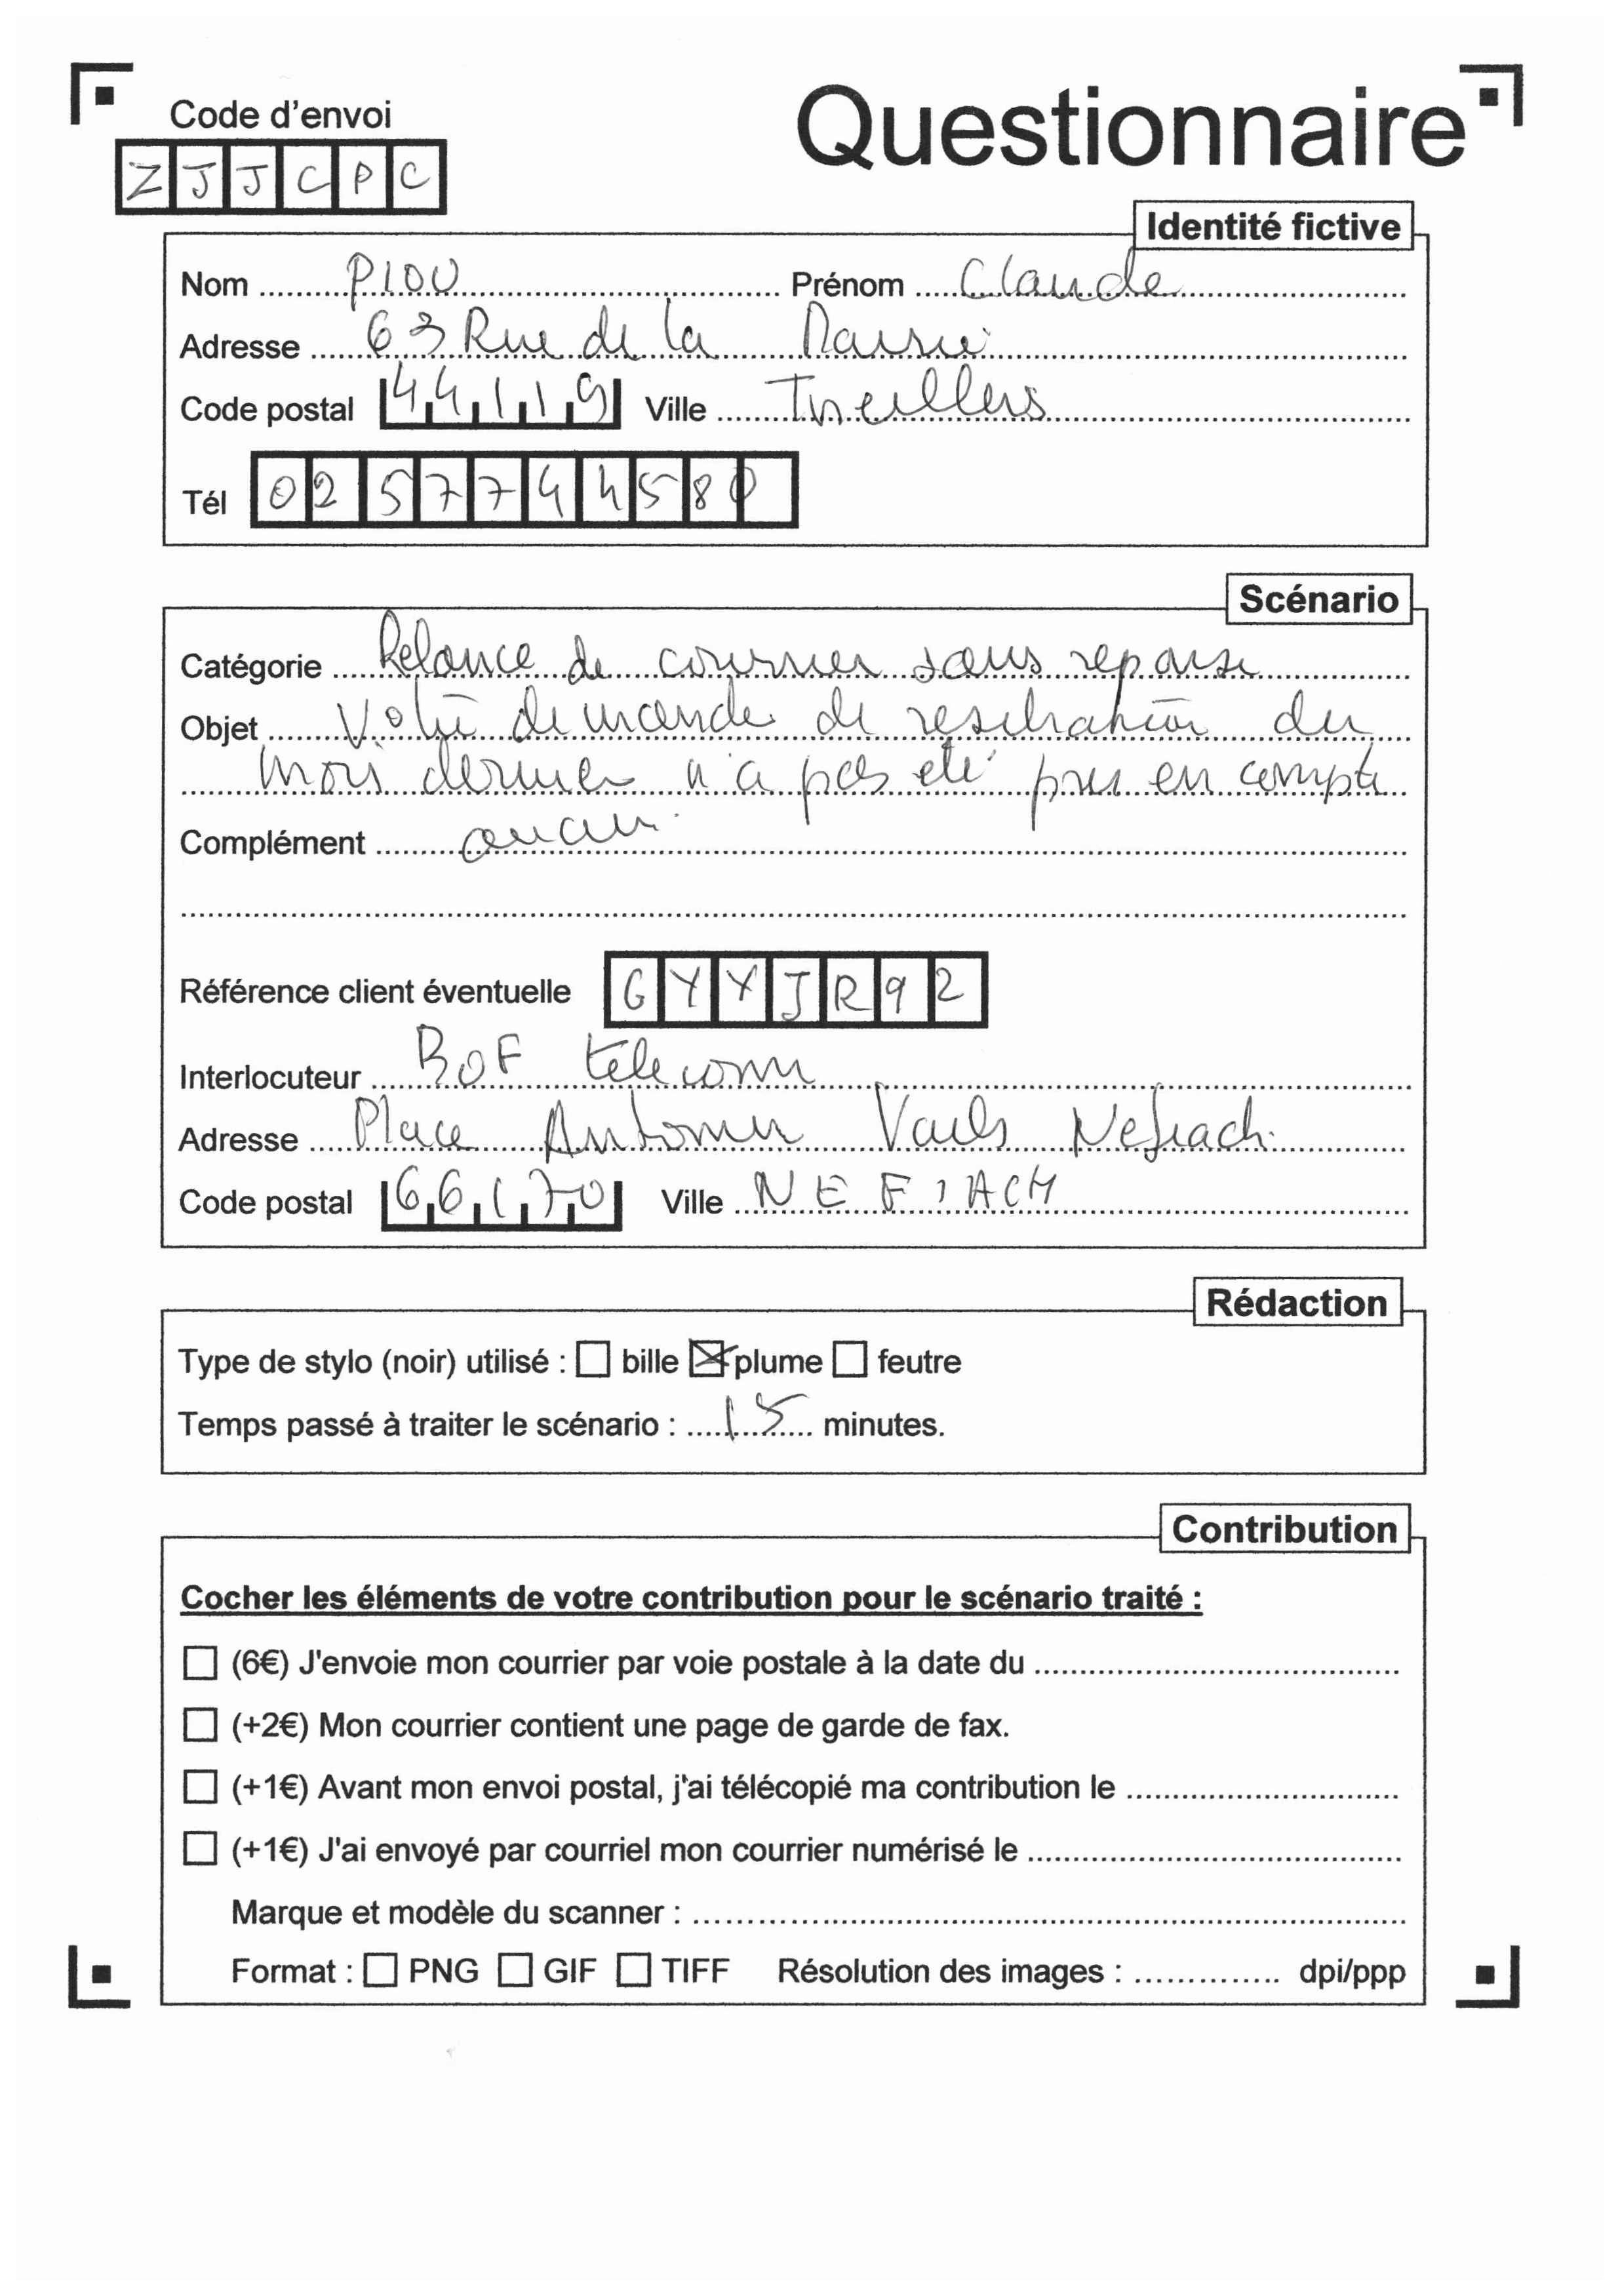 Code d'envoi
Questionnaire
ZJJCPC
Identité fictive
Nom PIOU Prénom Claude
Adresse 63 Rue de la Mairie
Code postal 44119 Ville Treillers
Tél 0257744580
Scénario
Catégorie Relance de courrier sans reponse
Objet Votre demande de resiliation du
mois dernier n'a pas été pris en compte
Complément aucun.
Référence client éventuelle GYYJR92
Interlocuteur BOF telecom
Adresse Place Antonin Vails Nefiach
Code postal 66170 Ville NEFIACH
Rédaction
Type de stylo (noir) utilisé : bille plume feutre
Temps passé à traiter le scénario : 15 minutes.
Contribution
Cocher les éléments de votre contribution pour le scénario traité :
(6€) J'envoie mon courrier par voie postale à la date du
(+2€) Mon courrier contient une page de garde de fax.
(+1€) Avant mon envoi postal, j'ai télécopié ma contribution le
(+1€) J'ai envoyé par courriel mon courrier numérisé le
Marque et modèle du scanner :
Format : PNG GIF TIFF Résolution des images : dpi/ppp